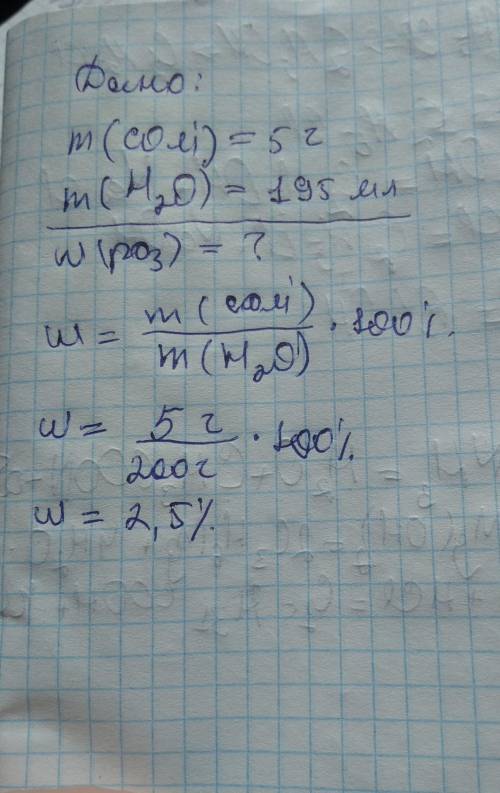 Дано:
m(солі) = 5 г
m(H₂O) = 195 мл
w(роз) = ?
w = m(солі) / m(H₂O) · 100%.
w = 5 г / 200г · 100%.
w = 2,5%.